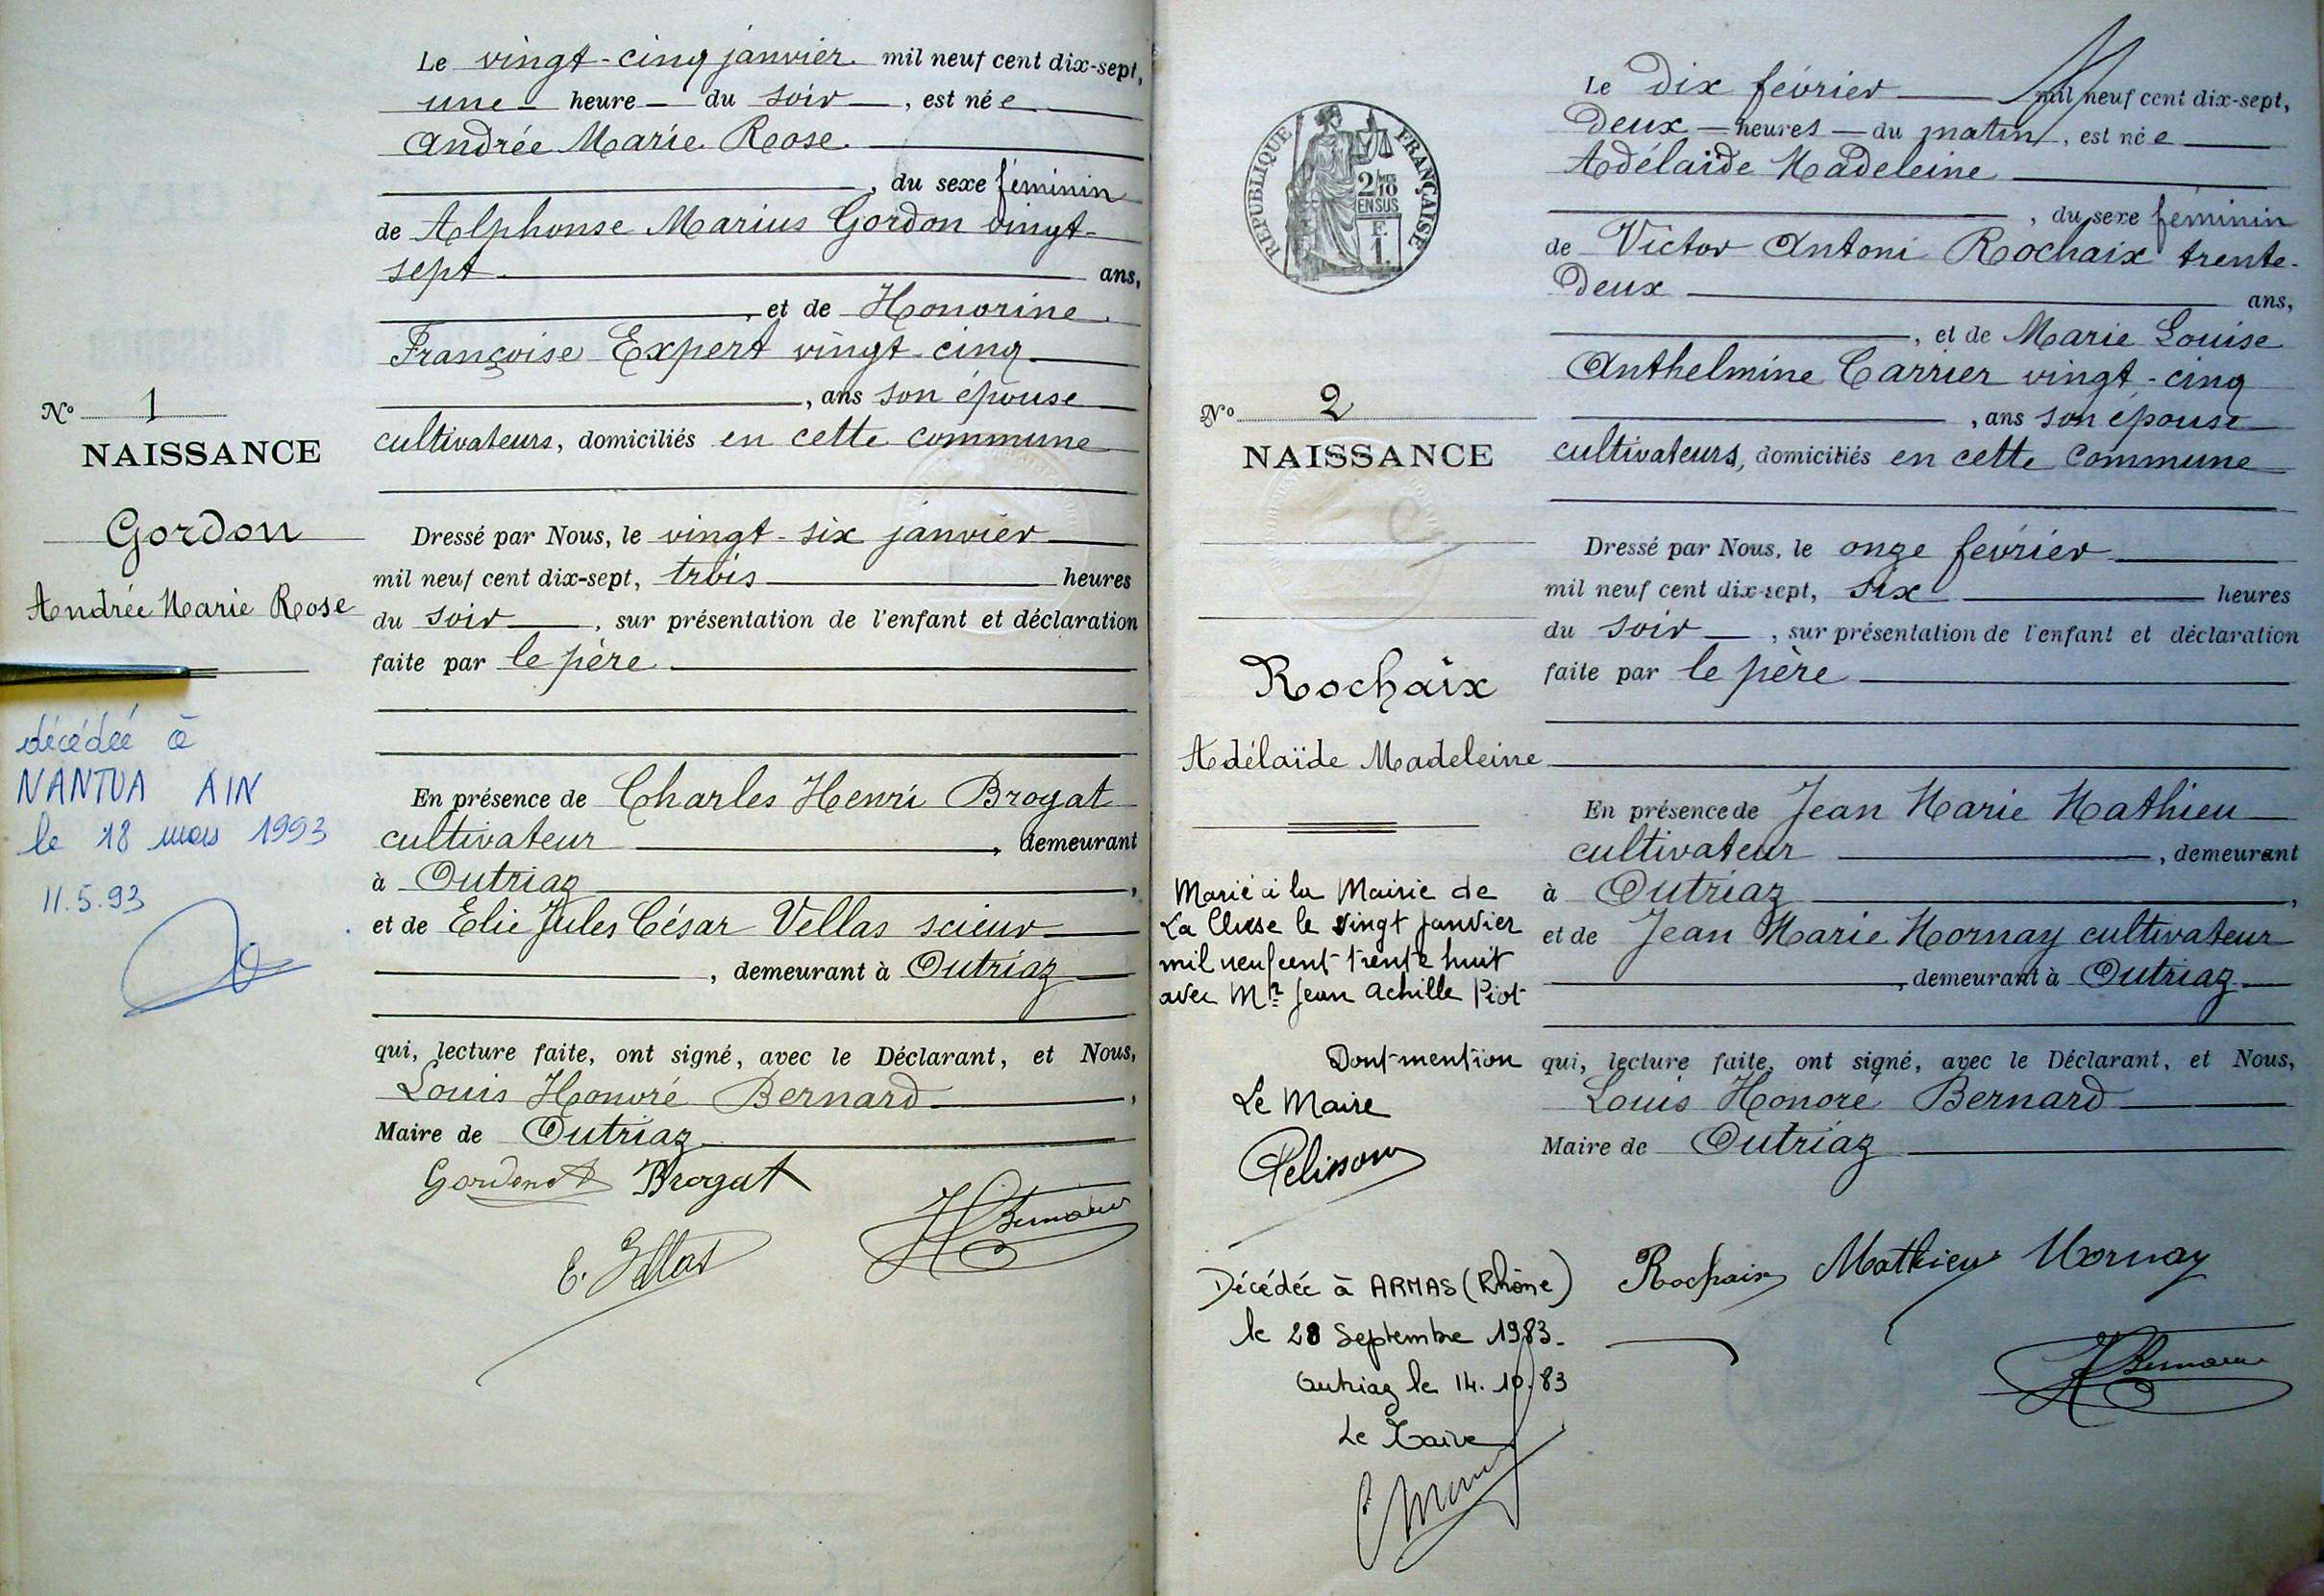 Le vingt-cinq janvier mil neuf cent dix-sept,
une heure du soir, est née
Andrée Marie Rose
, du sexe féminin
de Alphonse Marius Gordon vingt-
sept ans,
, et de Honorine
Françoise Expert vingt-cinq
, ans son épouse
cultivateurs, domiciliés en cette commune
Dressé par Nous, le vingt-six janvier
mil neuf cent dix-sept, trois heures
du soir, sur présentation de l'enfant et déclaration
faite par le père
En présence de Charles Henri Brogat
cultivateur, demeurant
à Outriaz,
et de Elie Jules César Vellas scieur
, demeurant à Outriaz
qui, lecture faite, ont signé, avec le Déclarant, et Nous,
Louis Honoré Bernard,
Maire de Outriaz
Brogat
H Bernard
N° 1
NAISSANCE
Gordon
Andrée Marie Rose
décédée à
NANTUA AIN
le 18 mars 1993
11.5.93
RÉPUBLIQUE FRANÇAISE
2/10
EN SUS
F.
1.
N° 2
NAISSANCE
Rochaix
Adélaïde Madeleine
Marié à la Mairie de
La Cluse le vingt janvier
mil neuf cent trente huit
avec Mr Jean Achille Piot
Dont mention
Le Maire
Décédée à ARMAS (Rhône)
le 28 Septembre 1983.
Outriaz le 14.10.83
Le Maire
Le dix février mil neuf cent dix-sept,
Deux heures du matin, est née
Adélaïde Madeleine
, du sexe féminin
de Victor Antoni Rochaix trente-
Deux ans,
, et de Marie Louise
Anthelmine Carrier vingt-cinq
, ans son épouse
cultivateurs, domiciliés en cette commune
Dressé par Nous, le onze février
mil neuf cent dix-sept, six heures
du soir, sur présentation de l'enfant et déclaration
faite par le père
En présence de Jean Marie Mathieu
cultivateur, demeurant
à Outriaz,
et de Jean Marie Mornay cultivateur
, demeurant à Outriaz
qui, lecture faite, ont signé, avec le Déclarant, et Nous,
Louis Honoré Bernard
Maire de Outriaz
Rochaix Mathieu Mornay
H Bernard